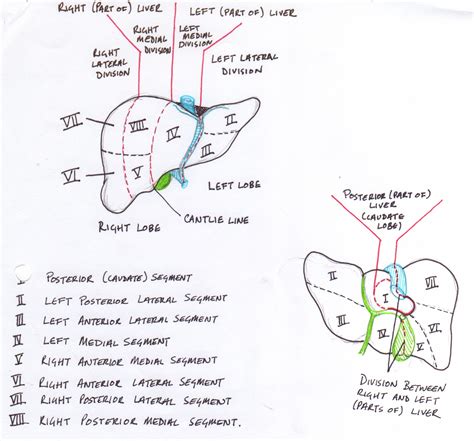 RIGHT (PART OF) LIVER
LEFT (PART OF) LIVER
RIGHT
LATERAL
DIVISION
RIGHT
MEDIAL
DIVISION
LEFT
MEDIAL
DIVISION
LEFT LATERAL
DIVISION
VII
VIII
IV
II
III
VI
V
LEFT LOBE
CANTLIE LINE
RIGHT LOBE
POSTERIOR (PART OF)
LIVER
(CAUDATE
LOBE)
II
I
VII
III
IV
V
VI
DIVISION BETWEEN
RIGHT AND LEFT
(PARTS OF) LIVER
I POSTERIOR (CAUDATE) SEGMENT
II LEFT POSTERIOR LATERAL SEGMENT
III LEFT ANTERIOR LATERAL SEGMENT
IV LEFT MEDIAL SEGMENT
V RIGHT ANTERIOR MEDIAL SEGMENT
VI RIGHT ANTERIOR LATERAL SEGMENT
VII RIGHT POSTERIOR LATERAL SEGMENT
VIII RIGHT POSTERIOR MEDIAL SEGMENT.